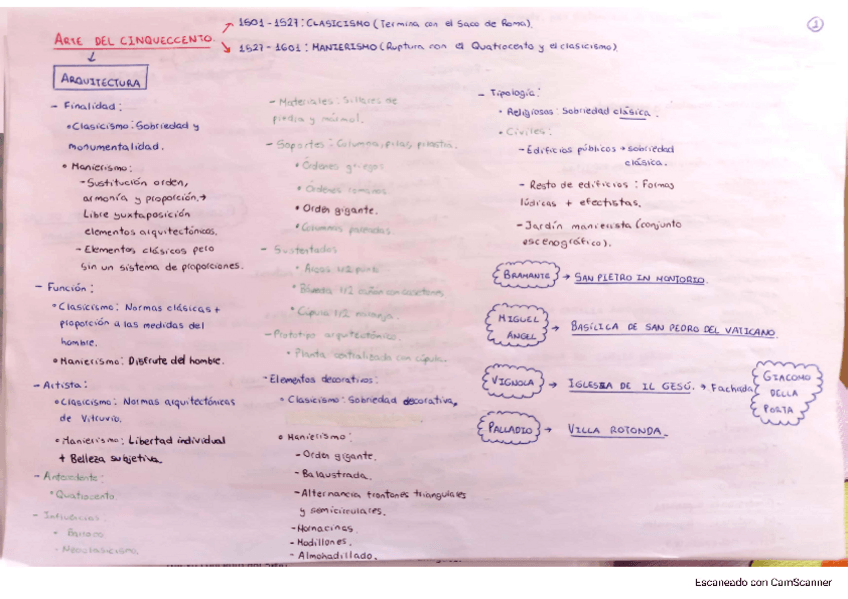 ARTE DEL CINQUECCENTO.
1501-1527: CLASICISMO (Termina con el Saco de Roma).
1527-1601: MANIERISMO (Ruptura con el Quatrocento y el clasicismo)
1
ARQUITECTURA
- Finalidad:
• Clasicismo: Sobriedad y
monumentalidad.
• Manierismo:
- Sustitución orden,
armonía y proporción. →
Libre yuxtaposición
elementos arquitectónicos.
- Elementos clásicos pero
sin un sistema de proporciones.
- Función:
• Clasicismo: Normas clásicas +
proporción a las medidas del
hombre.
• Manierismo: Disfrute del hombre.
- Artista:
• Clasicismo: Normas arquitectónicas
de Vitruvio.
• Manierismo: Libertad individual
+ Belleza subjetiva.
- Antecedente:
• Quatrocento
- Influencias:
• Barroco
- Neoclasicismo.
- Materiales: Sillares de
piedra y mármol.
- Soportes: Columna, pilar, pilastra.
• Órdenes griegos
• Órdenes romanos
• Orden gigante.
• Columnas pareadas.
- Sustentados
• Arcos 1/2 punto
• Bóveda 1/2 cañón con casetones
• Cúpula 1/2 naranja.
- Prototipo arquitectónico.
• Planta centralizada con cúpula.
- Elementos decorativos:
• Clasicismo: Sobriedad decorativa,
• Manierismo:
- Orden gigante.
- Balaustrada.
- Alternancia frontones triangulares
y semicirculares.
- Hornacinas.
- Modillones.
- Almohadillado.
- Tipología:
• Religiosos: Sobriedad clásica.
• Civiles:
- Edificios públicos → sobriedad
clásica.
- Resto de edificios: Formas
lúdicas + efectistas.
- Jardín manierista (conjunto
escenográfico).
BRAMANTE → SAN PIETRO IN MONTORIO.
MIGUEL
ÁNGEL → BASÍLICA DE SAN PEDRO DEL VATICANO.
VIGNOLA → IGLESIA DE IL GESÚ. → Fachada
GIACOMO
DELLA
PORTA
PALLADIO → VILLA ROTONDA.
Escaneado con CamScanner